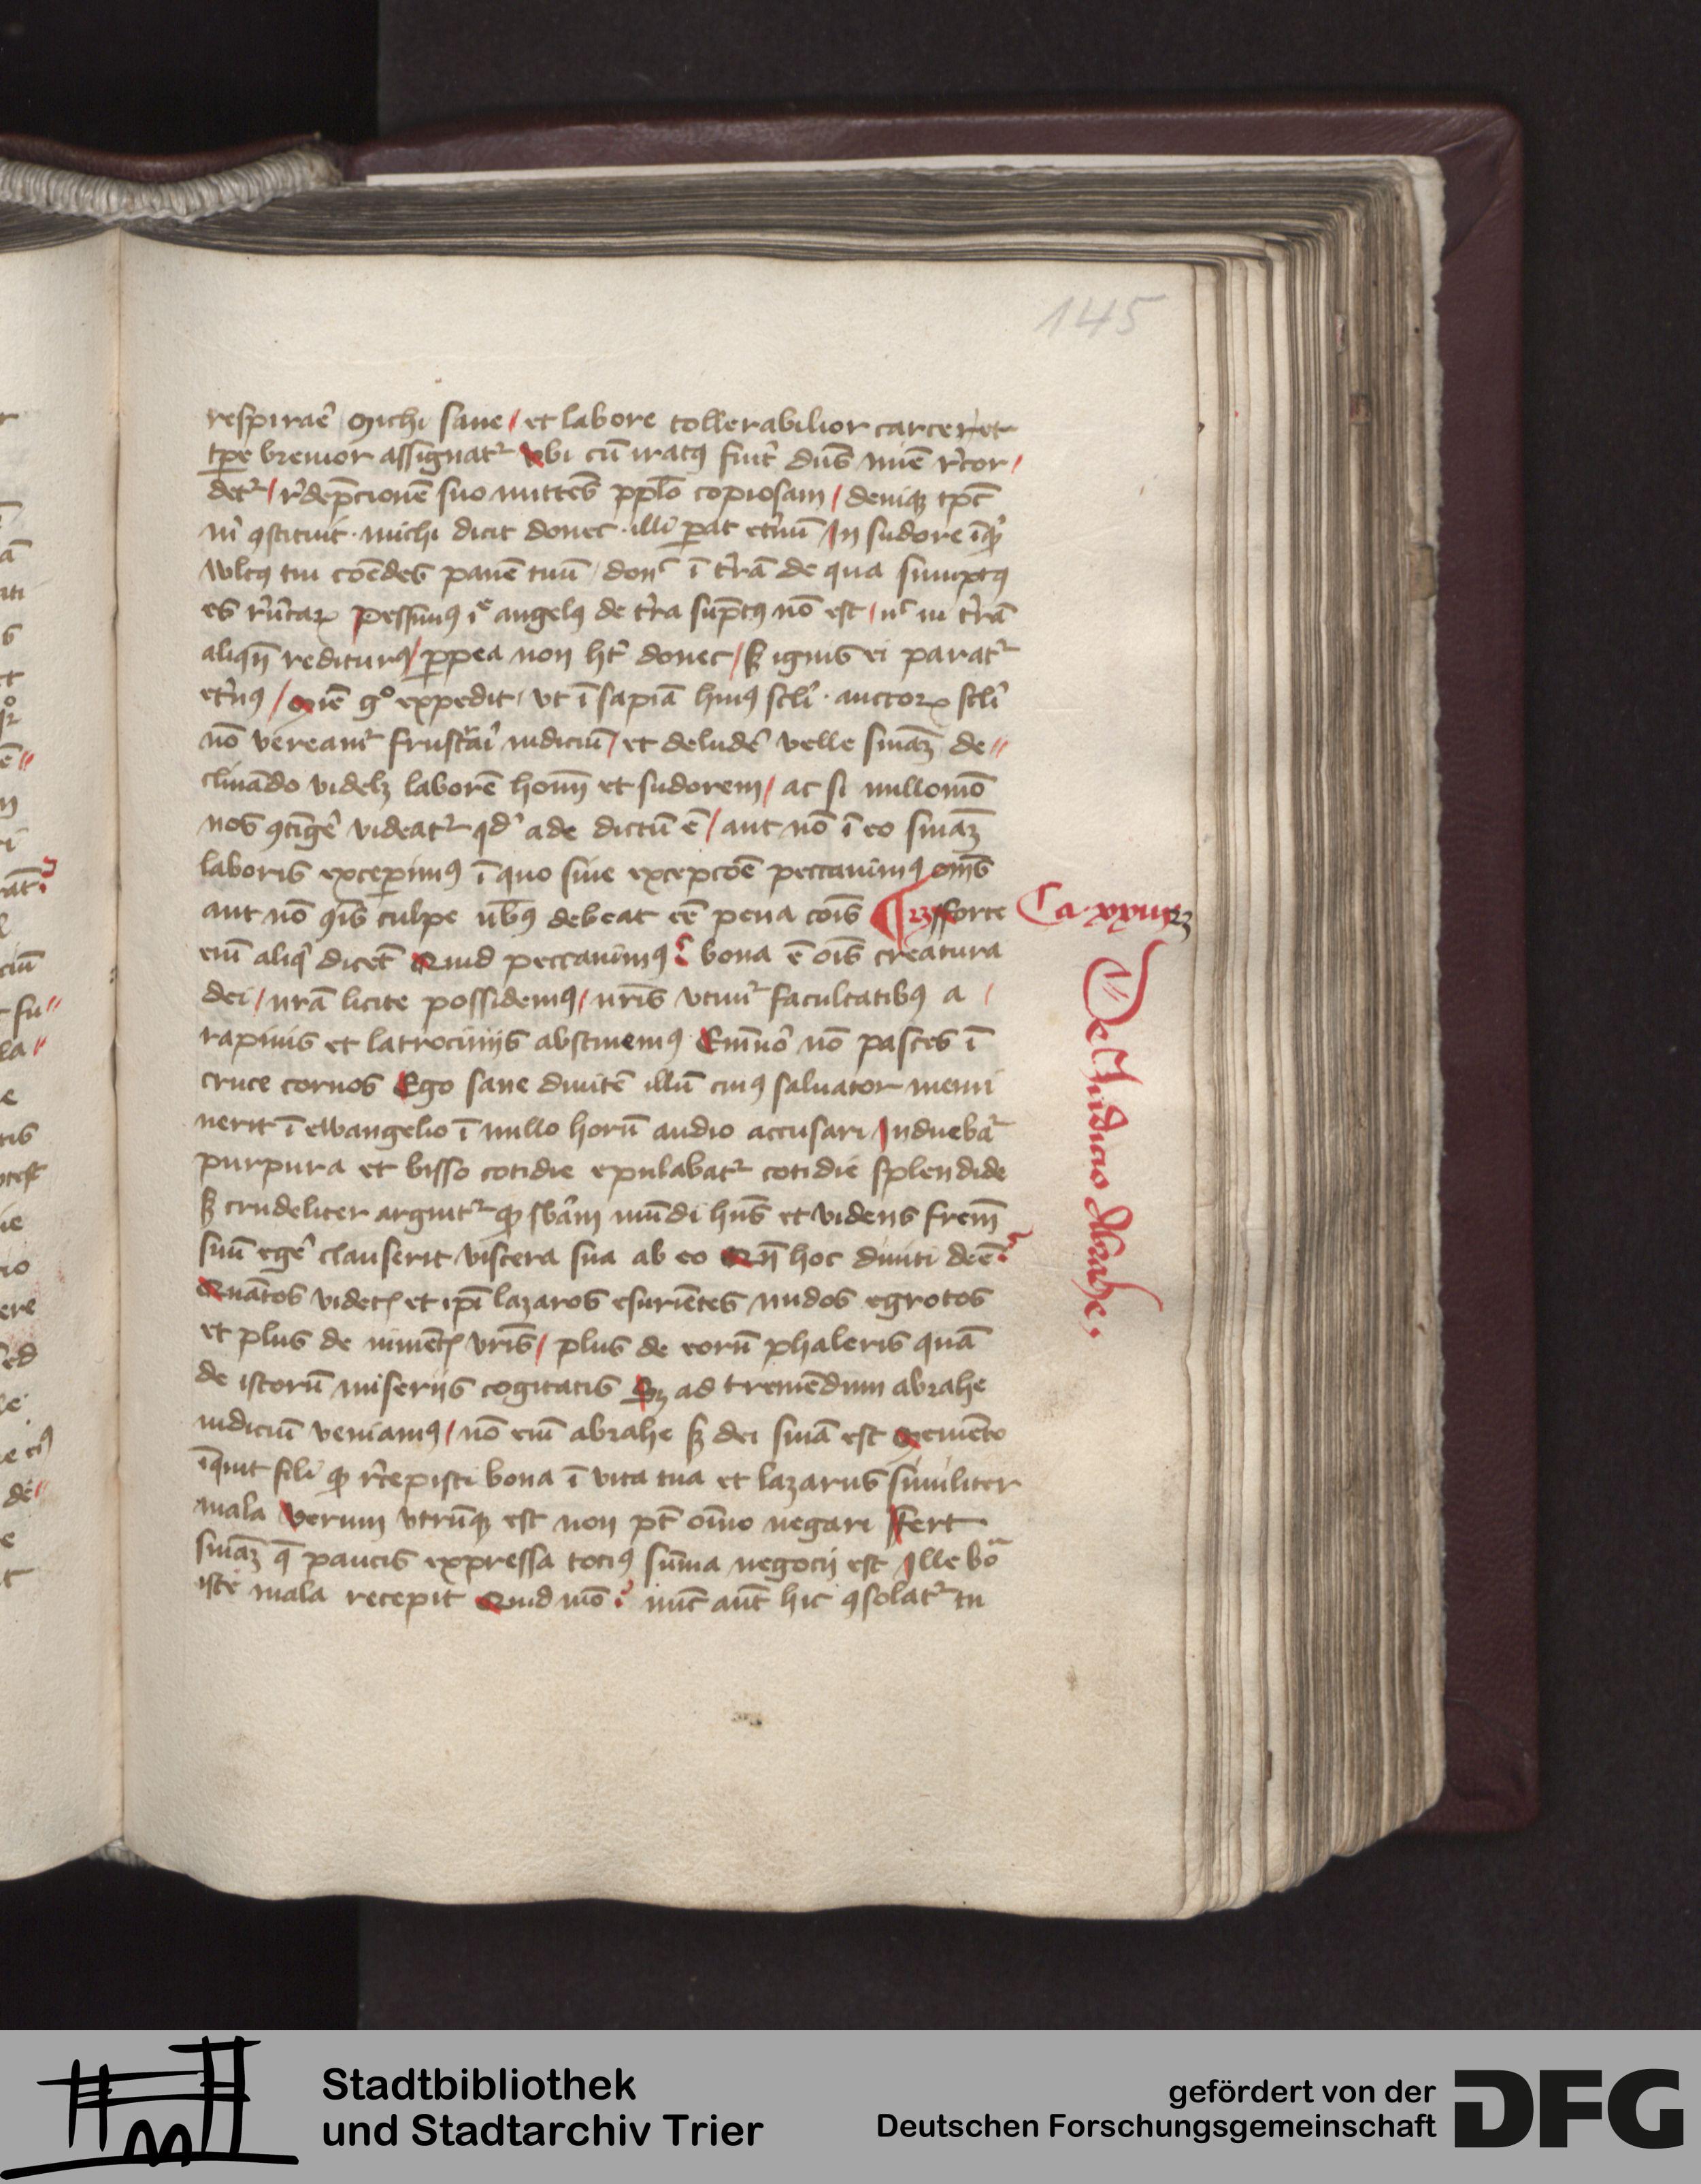 145
respiraē Michi sane / et labore tollerabilior carcer et
tpe breuior assignat᷑ Vbi cū iratꝰ fuit᷑ dn̄s mi᷑e r᷑cor /
det᷑ / r᷑dēpcionē suo mittēs pplō copiosam / deniqꝫ tpꝰ
michi dicit donec · illi parat et᷑nū In sudore
wltꝰ tui comēdes panē tuū / donͨ ī t᷑rā de qua sumptꝰ
es angelꝰ de t᷑ra sūptꝰ nō est / nͨ in t᷑rā
rediturꝰ / ꝓpea non hꝫ donec / sꝫ ignis ei parat᷑
et᷑nꝰ / gͦ expedit / vt ī sapiā huiꝰ scli · auctorꝫ scli
nō veream᷑ frustrai iudiciū / et deludē velle smāꝫ de //
clināndo videlꝫ laborē hoīm et sudorem / ac si nullomō
nos ꝯtīgē videat᷑ qd᷑ ade dictū ē / aut nō ī eo smāꝫ
laboris excepimꝰ ī quo sine excepcōe peccauimꝰ om̄s
aut nō culpe debeat eē pena cōis ¶ 23 Forte
Ca · xxiiii 23
De Iudicio Abrahe,
eni᷑ aliqͥ dicet Quid peccauimꝰ ? bona ē oīs creatura
dei / nrā licite possidemꝰ / nrīs vtim᷑ facultatibꝰ a /
rapinis et latrocinijs abstinemꝰ nō pasces ī
cruce coruos Ego sane diuitē illū cuiꝰ saluator memi
nerit ī ewangelio ī nullo horū audio accusari Induebat᷑
purpura et bisso cotidie epulabat᷑ cotidie splendide
sꝫ crudeliter arguit᷑ qꝫ sb̄am mūdi hn̄s et videns frem̄
suū egē clauserit viscera sua ab eo Qn̄ hoc diuiti deē ?
Quātos videtꝭ et ipī lazaros esuriētes nudos egrotos
et plus de iumētꝭ vrīs / plus de eorū phaleris quā
de istorū miserijs cogitatis Sꝫ ad tremēdum abrahe
iudiciū veniamꝰ / nō eni᷑ abrahe sꝫ dei smā est Memēto
īquit fili qꝫ r᷑cepisti bona ī vita tua et lazarus similiter
mala Verum vtrūqꝫ est non pt̄ om̄io negari Fert
smāꝫ q̄ paucis expressa totiꝰ sūma negocij est Ille bōa
iste mala recepit Quid mō ? nūc aut̄ hic ꝯsolat᷑ tu
Stadtbibliothek
und Stadtarchiv Trier
gefördert von der
Deutschen Forschungsgemeinschaft
DFG